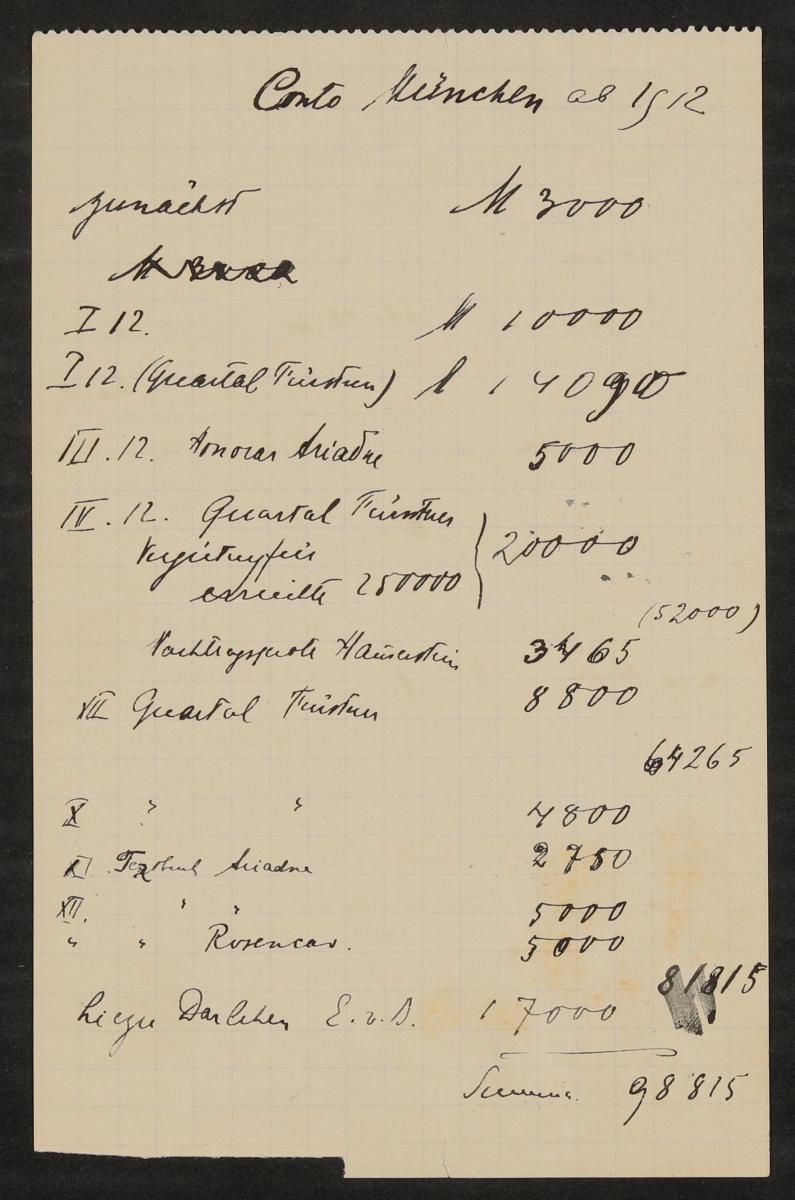 Conto München ab 1912
zunächst M 3000
M 3000
I 12. M 10000
I 12. (Quartal Fürstner) M 14000
III. 12. Honorar Ariadne 5000
IV. 12. Quartal Fürstner
Vergütung für 20000
250000
(52000)
Nachtragsquote 3465
VII Quartal Fürstner 8800
64265
X " " 4800
XI Textbuch Ariadne 2750
XII. " " 5000
" " Rosencav. 5000
81815
hiezu Darlehen E. v. B. 17000
Summa. 98815